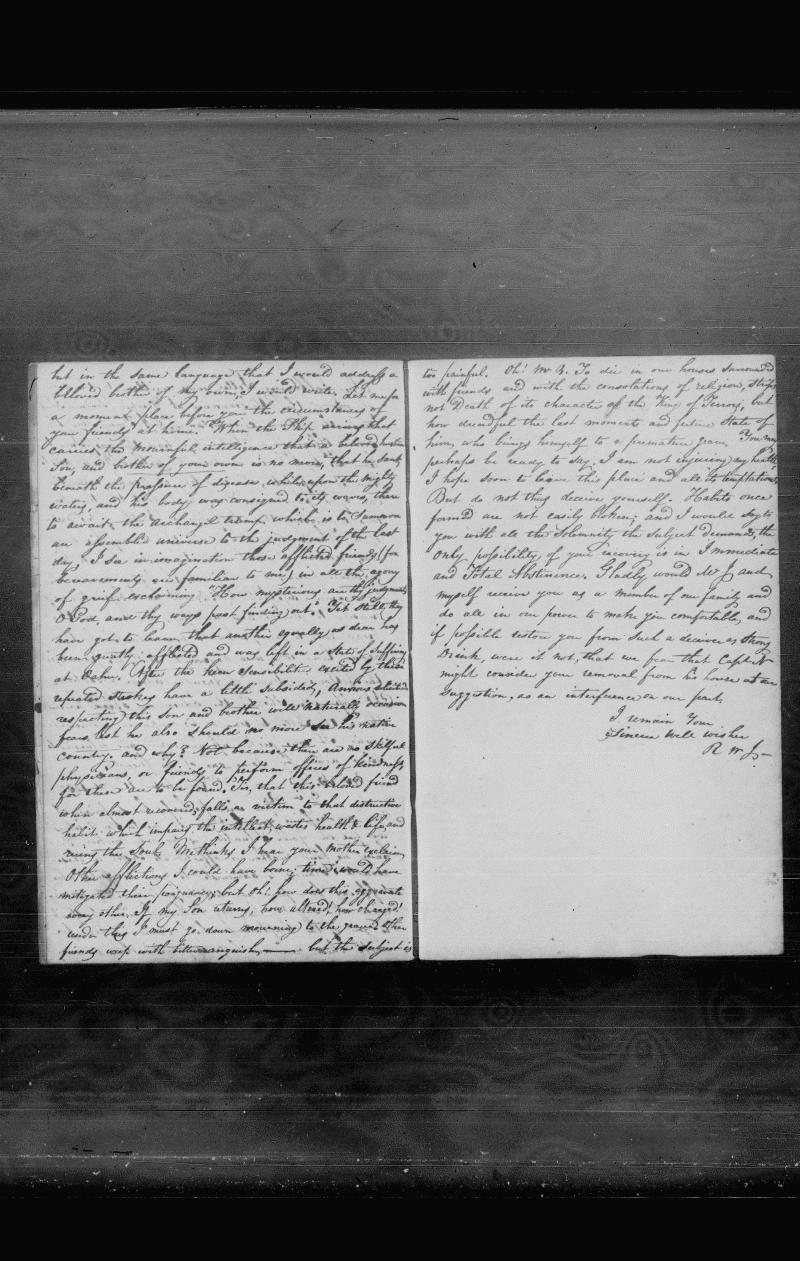 but in the same language that I would address a
beloved brother of my own, I would write. Let me for
a moment place before you the circumstances of
your friends at home. When the Ship arrives that
carries the mournful intelligence that a beloved
Son, and brother of your own is no more, that he sank
beneath the pressure of disease while upon the mighty
waters, and his body was consigned to its waves, there
to await the Archangel trump, which is to summon
an assembled universe to the judgment of the last
day. I see in imagination those afflicted friends (for
bereavements are familiar to me) in all the agony
of grief exclaiming How mysterious are thy judgments
O God, and thy ways past finding out! Yet still, they
have got to learn that another equally as dear has
been greatly afflicted and was left in a State of Suffering
at Oahu. After the keen sensibility excited by these
repeated Strokes have a little subsided, Anxious solicitude
respecting this Son and brother will naturally occasion
fears, lest he also should no more see his native
country, and why? Not because there are no skilful
physicians, or friends to perform offices of kindness,
for these are to be found. Tis, that this beloved friend
when almost recovered, falls a victim to that destructive
habit which impairs the intellect, wastes health & life, and
ruins the Soul. Methinks I hear your Mother exclaim,
Other afflictions I could have borne, time would have
mitigated their poignancy; but Oh! how does this aggravate
every other. If my Son returns, how altered, how changed!
Under this I must go down mourning to the grave. Other
friends weep with bitter anguish, but the subject is
too painful. Oh! Mr B. To die in our houses surrounded
with friends and with the consolations of religion, strips
not Death of its character of the King of Terrors, but
how dreadful the last moments and future State of
him, who brings himself to a premature grave. You may
perhaps be ready to say, I am not injuring my health,
I hope soon to leave this place and all its temptations,
But do not thus deceive yourself. Habits once
formed are not easily broken; and I would say to
you with all the Solemnity the Subject demands, the
only possibility of your recovery is in Immediate
and Total Abstinence. Gladly would Mr J and
myself receive you as a member of our family and
do all in our power to make you comfortable, and
if possible restore you from such a deceiver as Strong
Drink, were it not, that we fear that Capt
might consider your removal from his house at our
Suggestion, as an interference on our part.
I remain Your
Sincere Well wisher
R W J